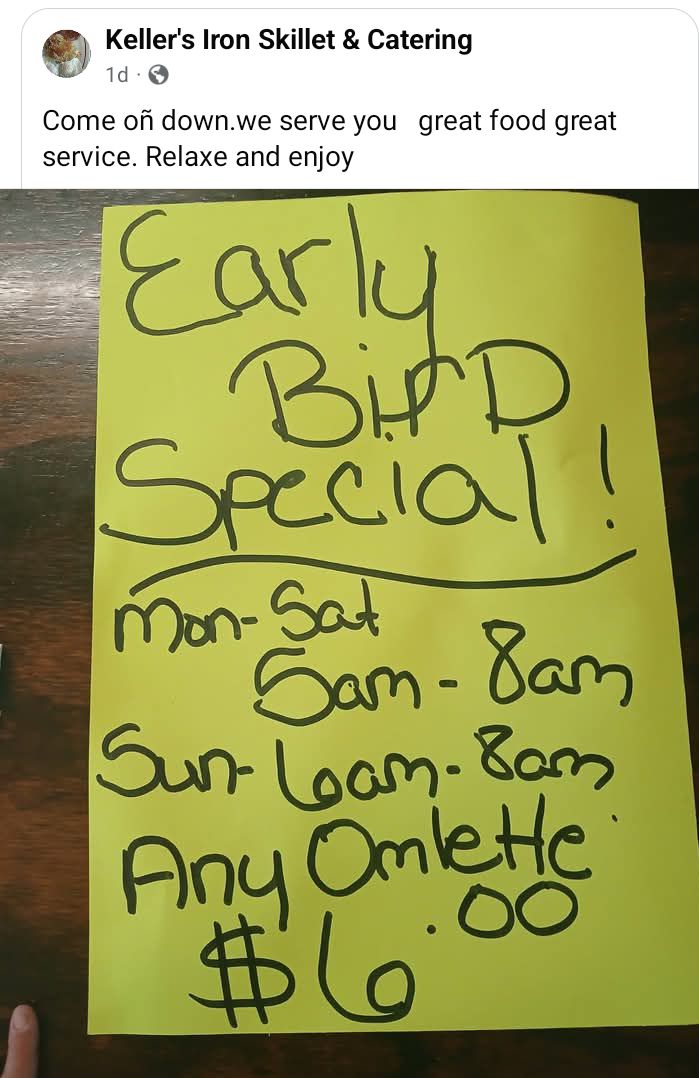 Keller's Iron Skillet & Catering
1d ·
Come oñ down.we serve you great food great
service. Relaxe and enjoy
Early
BirD
Special!
Mon-Sat
5am - 8am
Sun- 6am-8am
Any Omlette
$6.00